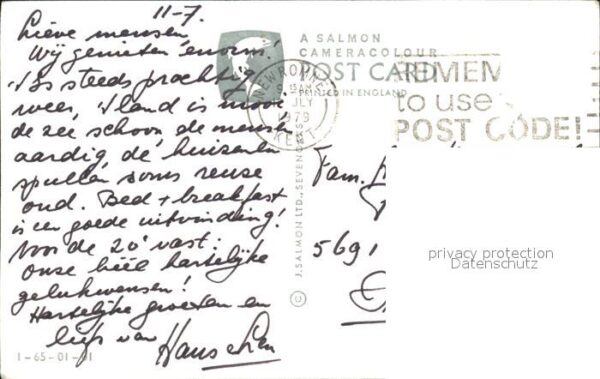 11-7.
Lieve mensen,
Wij genieten enorm!
't Is steeds prachtig
weer, 't land is mooi
de zee schoon, de mensen
aardig, de huizen en
spullen soms reuse
oud. Bed + breakfast
is een goede uitvinding!
Voor de 20e vast:
onze héél hartelijke
gelukwensen!
Hartelijke groeten en
liefs van
Hans
1-65-01-01
A SALMON
CAMERACOLOUR
POST CARD
PRINTED IN ENGLAND
NEW ROMNEY
AM
JLY
1979
KENT
REMEM
to use
POST CODE!
© J. SALMON LTD., SEVENOAKS
Fam.
5691
privacy protection
Datenschutz